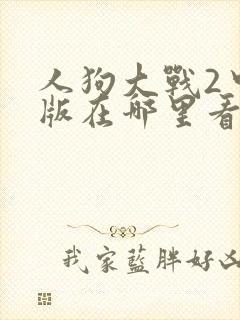 人狗大戰2
版在哪里看
我家藍胖好凶